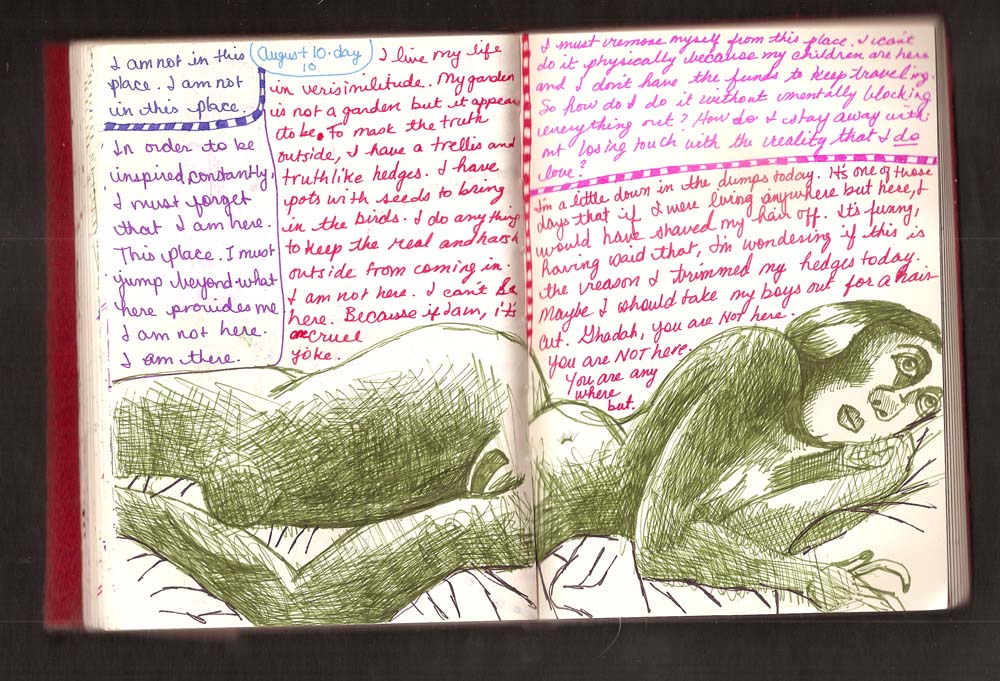 I am not in this
place. I am not
in this place.
In order to be
inspired, constantly,
I must forget
that I am here.
This place. I must
jump beyond what
here provides me
I am not here.
I am there.
August 10 · day
10
I live my life
in verisimilitude. My garden
is not a garden but it appears
to be. To mask the truth
outside, I have a trellis and
truthlike hedges. I have
pots with seeds to bring
in the birds. I do anything
to keep the real and harsh
outside from coming in.
I am not here. I can't be
here. Because if I am, it's
a cruel
joke.
I must remove myself from this place. I can't
do it physically because my children are here
and I don't have the funds to keep traveling.
So how do I do it without mentally blocking
everything out? How do I stay away with-
out losing touch with the reality that I do
love?
I'm a little down in the dumps today. It's one of those
days that if I were living anywhere but here, I
would have shaved my hair off. It's funny,
having said that, I'm wondering if this is
the reason I trimmed my hedges today.
Maybe I should take my boys out for a hair
cut. Ghadah, you are Not here.
You are NOT here.
You are any
where
but.